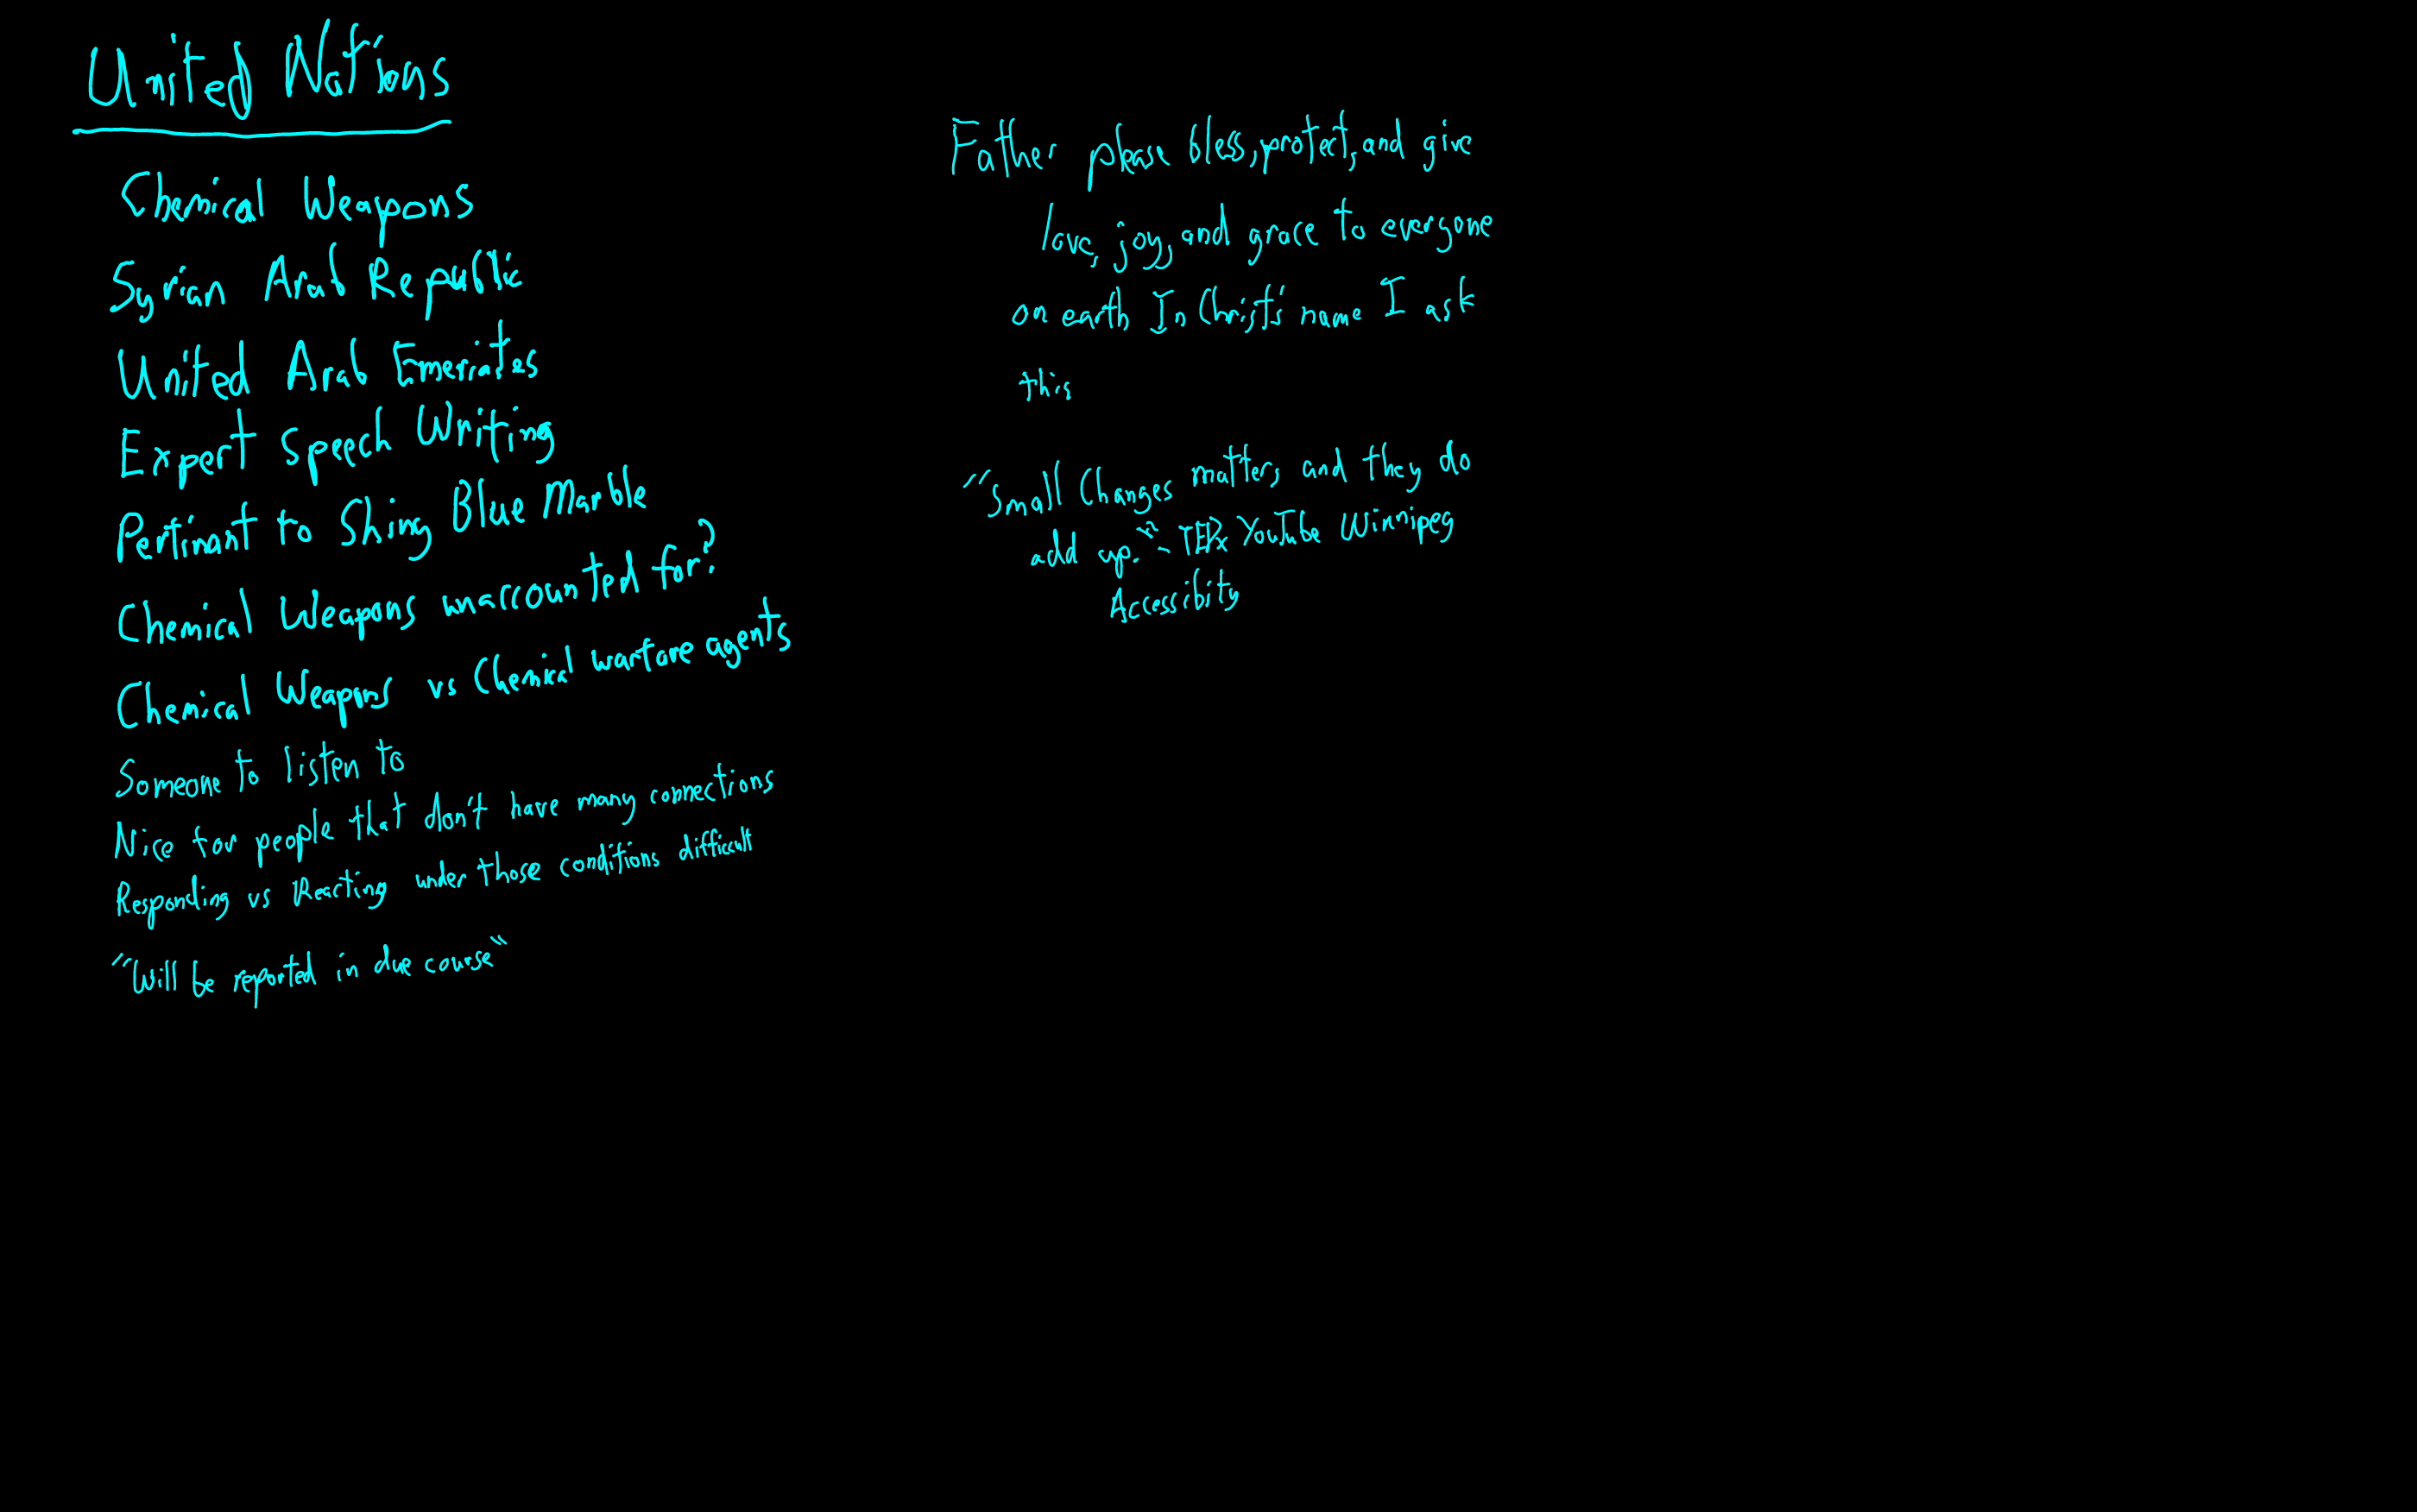 United Nations
Chemical Weapons
Syrian Arab Republic
United Arab Emeriates
Expert Speech Writing
Pertinant to Shing Blue Marble
Chemical Weapons unaccounted for?
Chemical Weapons vs Chemical warfare agents
Someone to listen to
Nice for people that don't have many connections
Responding vs Reacting under those conditions difficult
"Will be reported in due course"
Father please bless, protect, and give
love, joy, and grace to everyone
on earth In Christ's name I ask
this
"Small Changes matter, and they do
add up." - TEDx YouTube Winnipeg
Accessibity